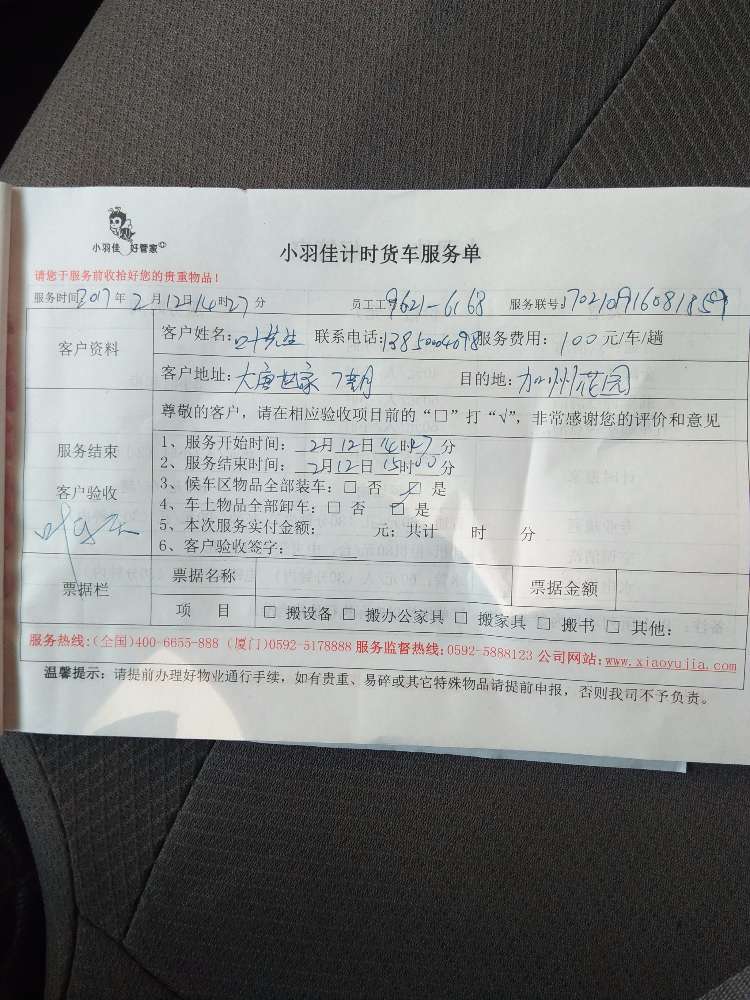 小羽佳 好管家
小羽佳计时货车服务单
请您于服务前收拾好您的贵重物品！
服务时间2017年2月12日14时27分 员工工号9621-6168 服务联号:
客户资料
客户姓名:叶先生 联系电话: 服务费用: 100元/车/趟
客户地址:大唐世家 目的地:加州花园
尊敬的客户，请在相应验收项目前的“□”打“√”，非常感谢您的评价和意见
服务结束
客户验收
1、服务开始时间: 2月12日14时27分
2、服务结束时间: 2月12日15时00分
3、候车区物品全部装车: □ 否 □ 是
4、车上物品全部卸车: □ 否 □ 是
5、本次服务实付金额: 元; 共计 时 分
6、客户验收签字:
票据栏
票据名称 票据金额
项 目 □ 搬设备 □ 搬办公家具 □ 搬家具 □ 搬书 □ 其他:
服务热线:(全国)400-6655-888 (厦门)0592-5178888 服务监督热线:0592-5888123 公司网站:www.xiaoyujia.com
温馨提示: 请提前办理好物业通行手续，如有贵重、易碎或其它特殊物品请提前申报，否则我司不予负责。